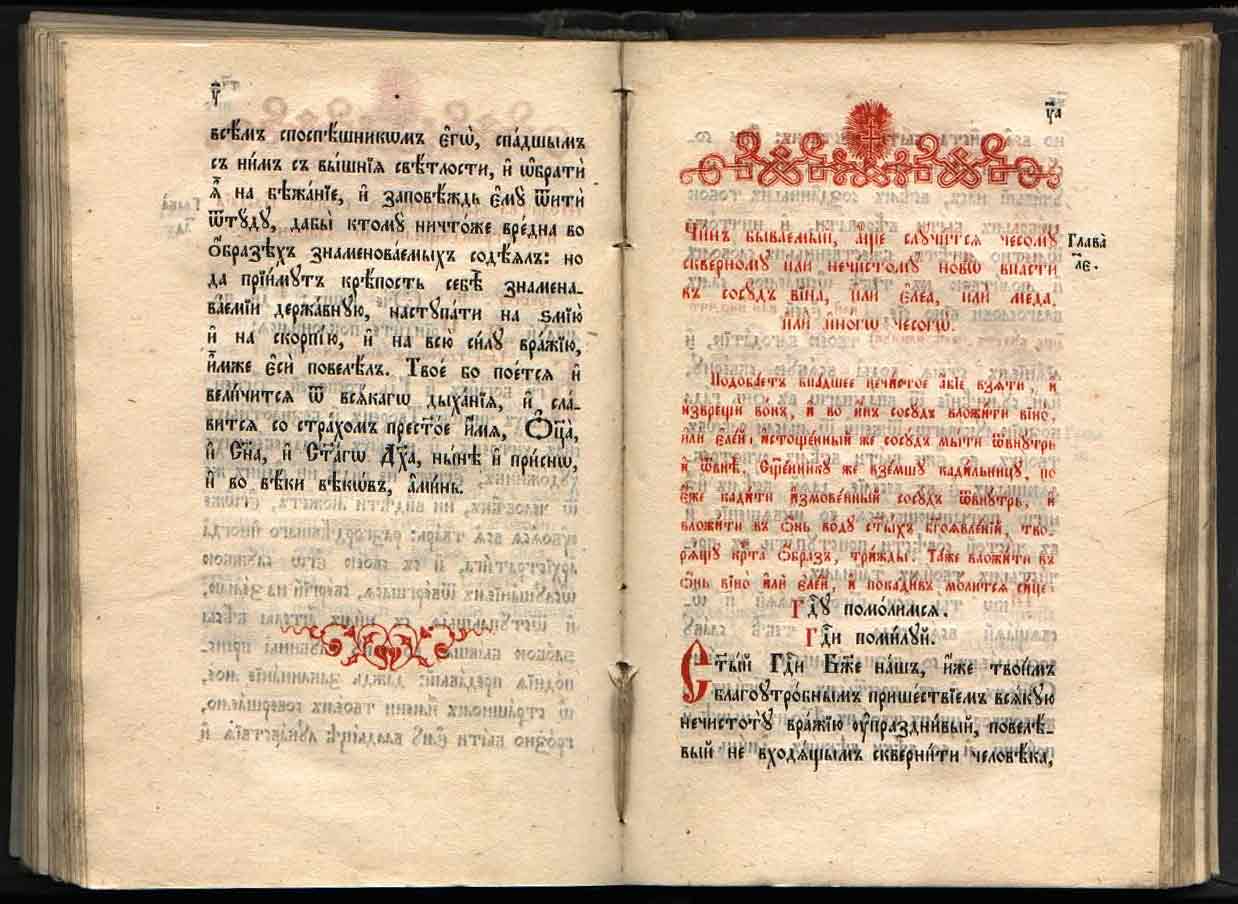 у҃
всѣ́мъ споспѣ́шникѡмъ є҆гѡ̀, спа́дшымъ
съ ни́мъ съ вы́шнїѧ свѣ́тлости, и҆ ѡ҆братѝ
ѧ҆̀ на бѣжа́нїе, и҆ заповѣ́ждь є҆мꙋ̀ ѿитѝ
ѿтꙋ́дꙋ, дабы̀ ктомꙋ̀ ничто́же вре́дна во
ѻ҆́бразѣхъ знаменова́емыхъ содѣ́ѧлъ: но
да прїи́мꙋтъ крѣ́пость себѣ̀ знамена-
ва́емїи держа́внꙋю, настꙋпа́ти на ѕмїю̀
и҆ на скорпі́ю, и҆ на всю̀ си́лꙋ вра́жїю,
и҆́мже є҆сѝ повелѣ́лъ. Твоѐ бо пое́тсѧ и҆
вели́читсѧ ѿ всѧ́кагѡ дыха́нїѧ, и҆ сла́-
витсѧ со стра́хомъ прест҃о́е и҆́мѧ, Ѻ҆ц҃а̀,
и҆ Сн҃а, и҆ Ст҃а́гѡ Дх҃а, ны́нѣ и҆ при́снѡ,
и҆ во вѣ́ки вѣкѡ́въ, а҆ми́нь.
у҃а
Чи́нъ быва́емый, а҆́ще слꙋчи́тсѧ чесомꙋ̀
скве́рномꙋ и҆лѝ нечи́стомꙋ но́вѡ впа́сти
въ сосꙋ́дъ вїна̀, и҆лѝ є҆ле́а, и҆лѝ ме́да,
и҆лѝ и҆но́гѡ чесогѡ̀.
Глава̀
л҃е.
Подоба́етъ впа́дшее нечи́стое а҆́бїе взѧ́ти, и҆
и҆зврещѝ во́нъ, и҆ во и҆́нъ сосꙋ́дъ вложи́ти вїно̀,
и҆лѝ є҆ле́й; и҆стоще́нный же сосꙋ́дъ мы́ти ѿвнꙋ́трь
и҆ ѿвнѣ̀, Сщ҃е́нникꙋ же взе́мшꙋ кади́льницꙋ, по
є҆́же кади́ти и҆змове́нный сосꙋ́дъ ѿвнꙋ́трь, и҆
вложи́ти въ ѻ҆́нь во́дꙋ ст҃ы́хъ бг҃оѧвле́нїй, тво-
рѧ́щꙋ крⷭ҇та̀ ѻ҆́бразъ, три́жды; Та́же вложи́ти въ
ѻ҆́нь вїно̀ и҆лѝ є҆ле́й, и҆ покади́въ мо́литсѧ си́це:
Гдⷭ҇ꙋ помо́лимсѧ.
Гдⷭ҇и поми́лꙋй.
Ст҃ы́й Гдⷭ҇и Бж҃е на́шъ, и҆́же твои́мъ
благоꙋтро́бнымъ прише́ствїемъ всѧ́кꙋю
нечистотꙋ̀ вра́жїю ᲂу҆праздни́вый, повелѣ́-
вый не входѧ́щымъ скверни́ти человѣ́ка,